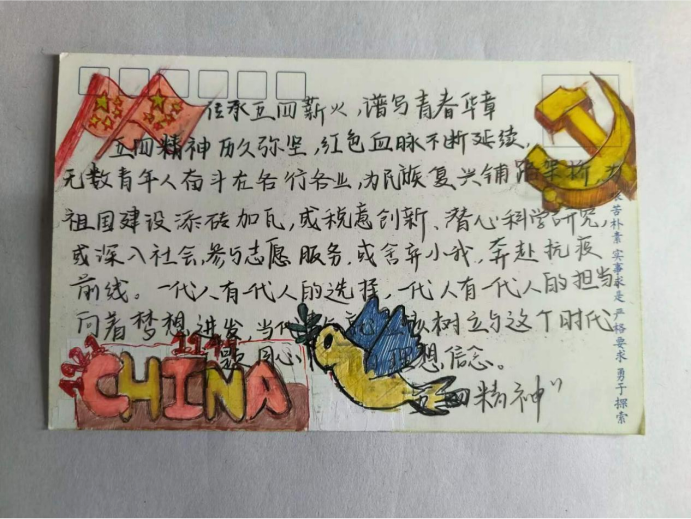 传承五四薪火，谱写青春华章
五四精神历久弥坚，红色血脉不断延续，
无数青年人奋斗在各行各业，为民族复兴铺路架桥，为
祖国建设添砖加瓦，或锐意创新、潜心科学研究，
或深入社会，参与志愿服务，或舍弃小我，奔赴抗疫
前线。一代人有一代人的选择，一代人有一代人的担当
向着梦想进发，当代 树立与这个时代
同心 理想信念。
1921
CHINA
四精神”
苦朴素 实事求是 严格要求 勇于探索